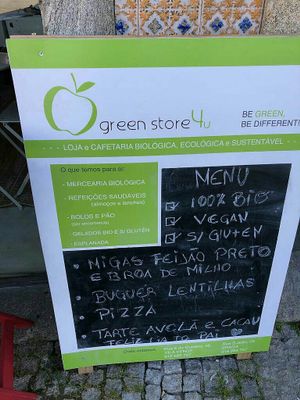 green store 4u
BE GREEN,
BE DIFFERENT!
LOJA e CAFETARIA BIOLÓGICA, ECOLÓGICA e SUSTENTÁVEL
O que temos para si:
- MERCEARIA BIOLÓGICA
- REFEIÇÕES SAUDÁVEIS
(almoços e lanches)
- BOLOS E PÃO
- GELADOS BIO E S/ GLUTÉN
- ESPLANADA
MENU
100% BIO
VEGAN
S/ GLUTEN
MIGAS FEIJÃO PRETO
E BROA DE MILHO
BUGUER LENTILHAS
PIZZA
TARTE AVELÃ E CACAU
FELIZ DIA DO PAI